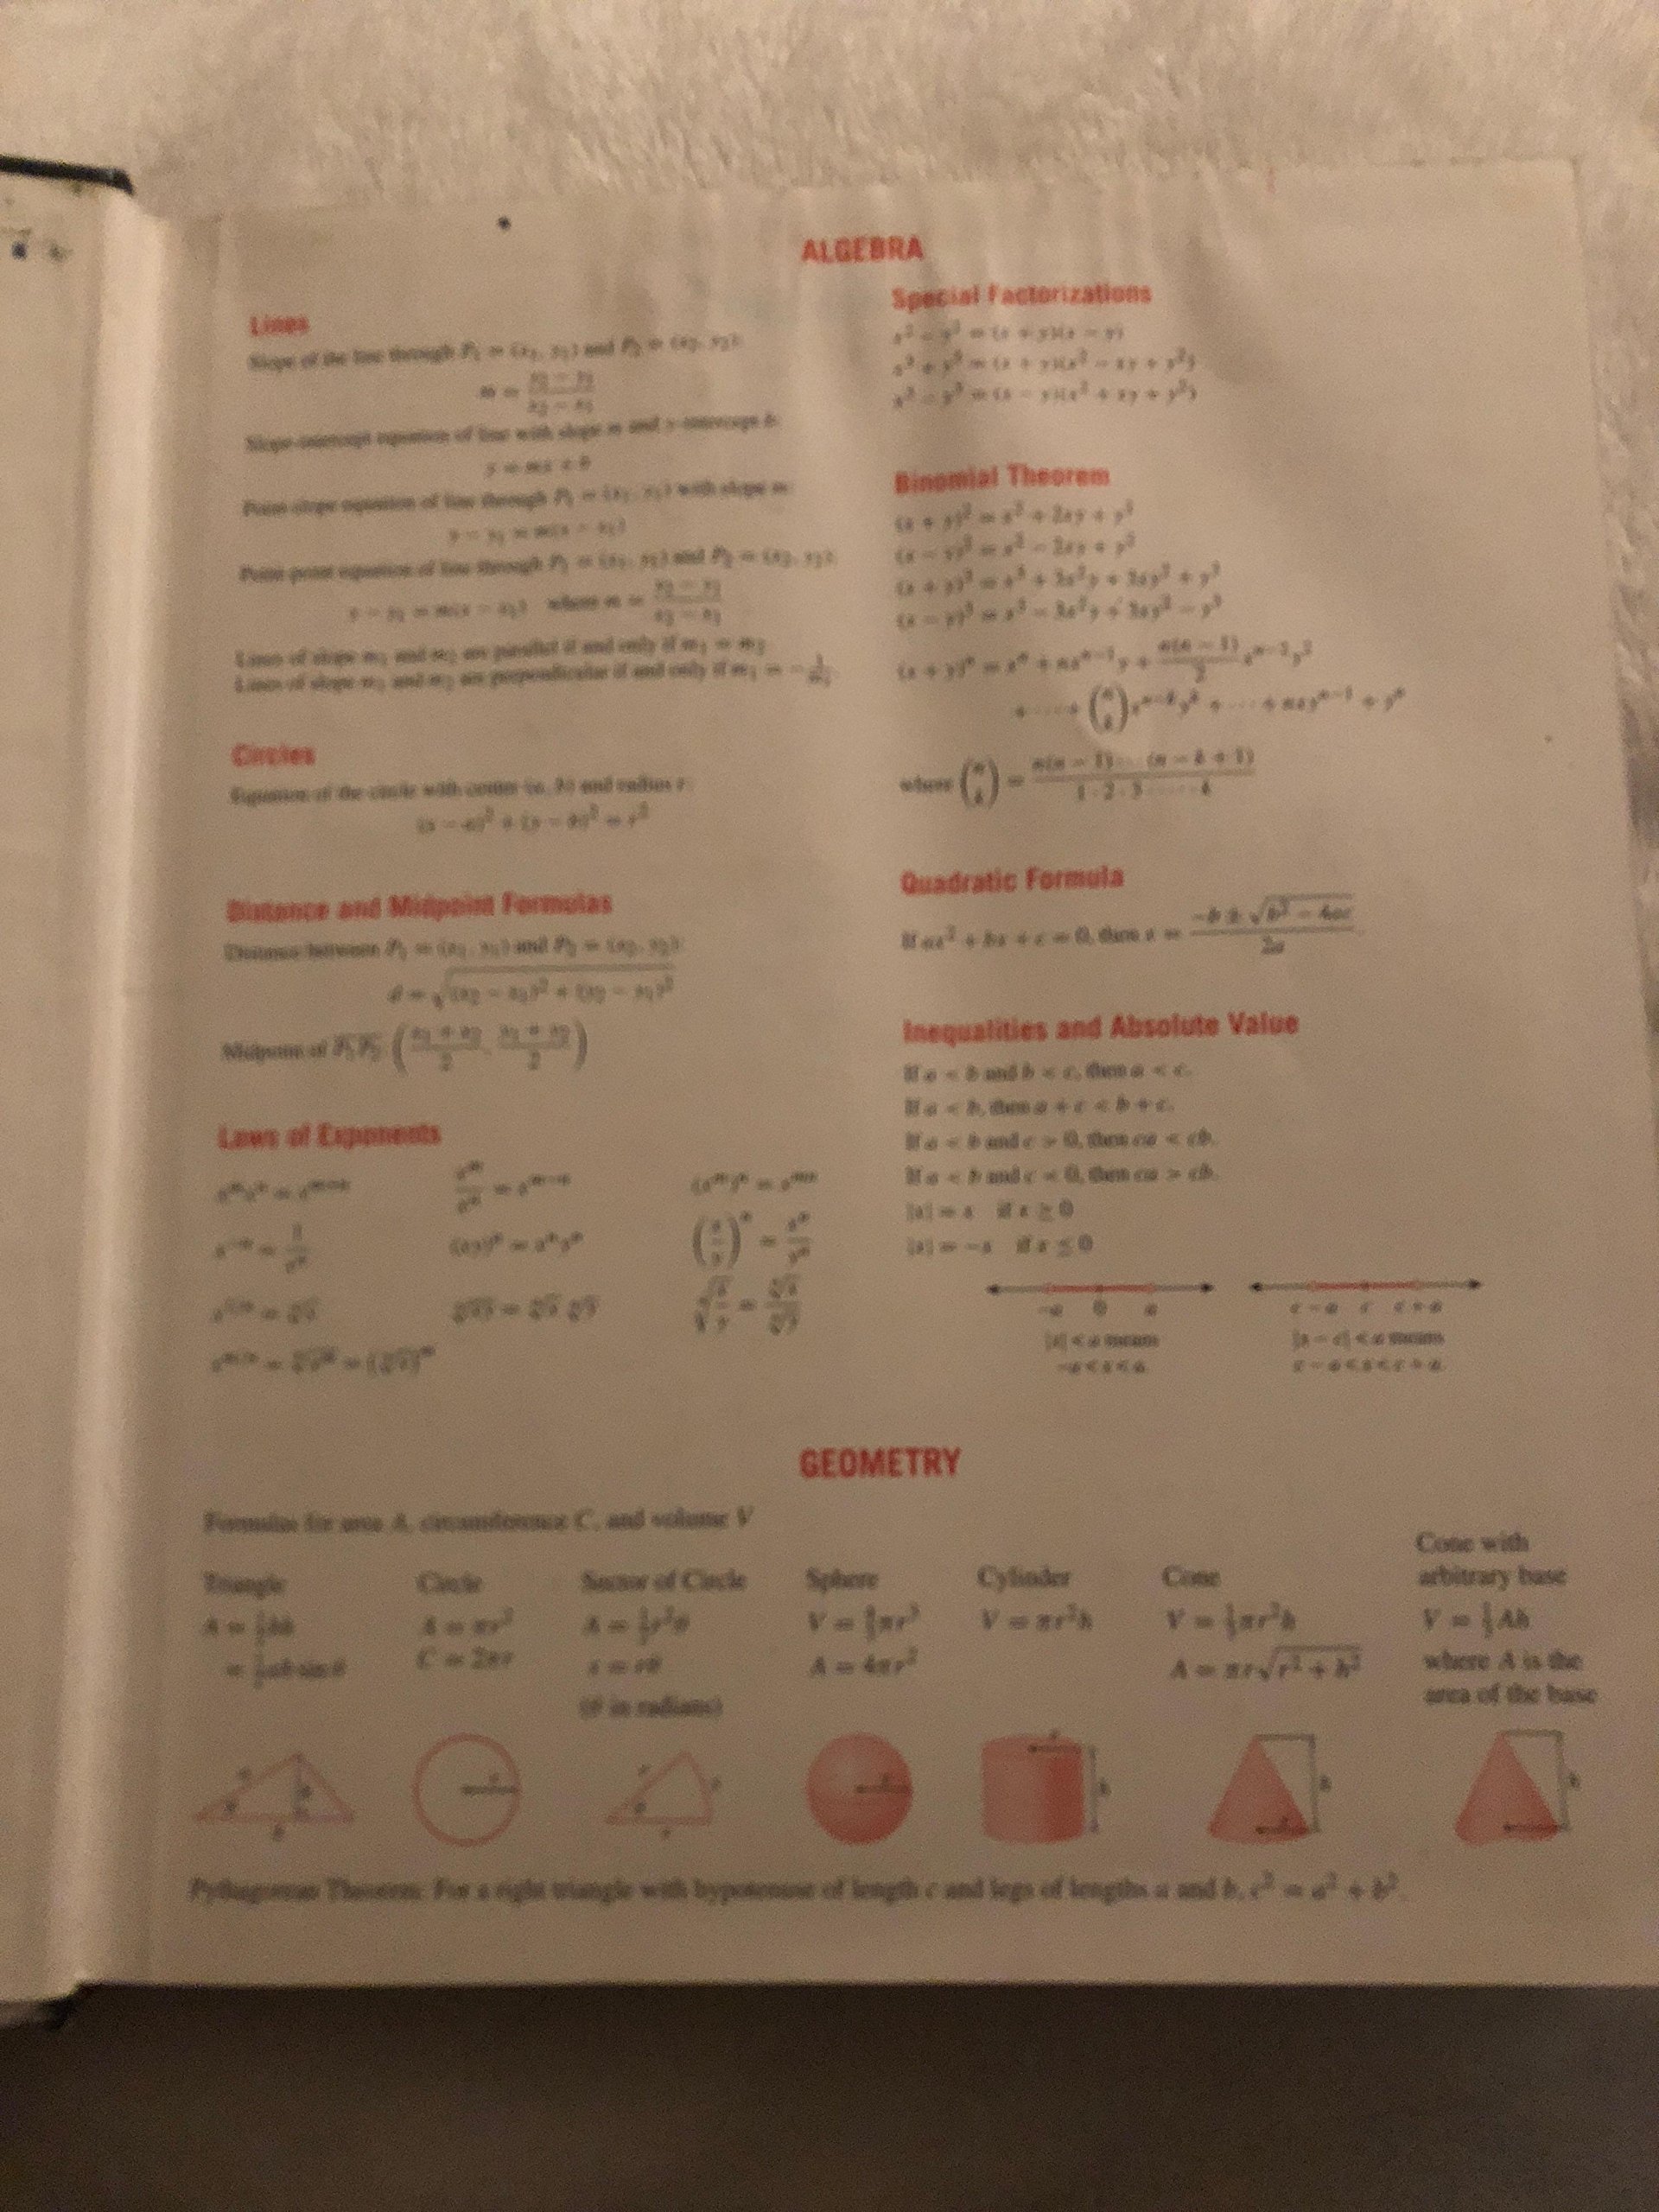 ALGEBRA
Lines
Slope of the line through P₁ = (x₁, y₁) and P₂ = (x₂, y₂):
m = (y₂ − y₁)/(x₂ − x₁)
Slope-intercept equation of line with slope m and y-intercept b:
y = mx + b
Point-slope equation of line through P₁ = (x₁, y₁) with slope m:
y − y₁ = m(x − x₁)
Point-point equation of line through P₁ = (x₁, y₁) and P₂ = (x₂, y₂):
y − y₁ = m(x − x₁) where m = (y₂ − y₁)/(x₂ − x₁)
Lines of slope m₁ and m₂ are parallel if and only if m₁ = m₂.
Lines of slope m₁ and m₂ are perpendicular if and only if m₁ = −1/m₂.
Circles
Equation of the circle with center (a, b) and radius r:
(x − a)² + (y − b)² = r²
Distance and Midpoint Formulas
Distance between P₁ = (x₁, y₁) and P₂ = (x₂, y₂):
d = √((x₂ − x₁)² + (y₂ − y₁)²)
Midpoint of P₁P₂: ((x₁ + x₂)/2, (y₁ + y₂)/2)
Laws of Exponents
xᵐxⁿ = xᵐ⁺ⁿ xᵐ/xⁿ = xᵐ⁻ⁿ (xᵐ)ⁿ = xᵐⁿ
x⁻ⁿ = 1/xⁿ (xy)ⁿ = xⁿyⁿ (x/y)ⁿ = xⁿ/yⁿ
x^(1/n) = ⁿ√x ⁿ√(xy) = ⁿ√x ⁿ√y ⁿ√(x/y) = ⁿ√x/ⁿ√y
x^(m/n) = ⁿ√(xᵐ) = (ⁿ√x)ᵐ
Special Factorizations
x² − y² = (x + y)(x − y)
x³ + y³ = (x + y)(x² − xy + y²)
x³ − y³ = (x − y)(x² + xy + y²)
Binomial Theorem
(x + y)² = x² + 2xy + y²
(x − y)² = x² − 2xy + y²
(x + y)³ = x³ + 3x²y + 3xy² + y³
(x − y)³ = x³ − 3x²y + 3xy² − y³
(x + y)ⁿ = xⁿ + nxⁿ⁻¹y + (n(n − 1)/2)xⁿ⁻²y²
+ ··· + (n k)xⁿ⁻ᵏyᵏ + ··· + nxyⁿ⁻¹ + yⁿ
where (n k) = n(n − 1)···(n − k + 1)/(1 · 2 · 3 ····· k)
Quadratic Formula
If ax² + bx + c = 0, then x = (−b ± √(b² − 4ac))/2a.
Inequalities and Absolute Value
If a < b and b < c, then a < c.
If a < b, then a + c < b + c.
If a < b and c > 0, then ca < cb.
If a < b and c < 0, then ca > cb.
|x| = x if x ≥ 0
|x| = −x if x ≤ 0
−a 0 a c − a c c + a
|x| < a means |x − c| < a means
−a < x < a. c − a < x < c + a.
GEOMETRY
Formulas for area A, circumference C, and volume V
Triangle Circle Sector of Circle Sphere Cylinder Cone Cone with arbitrary base
A = ½bh A = πr² A = ½r²θ V = 4/3πr³ V = πr²h V = ⅓πr²h V = ⅓Ah
= ½ab sin θ C = 2πr s = rθ A = 4πr² A = πr√(r² + h²) where A is the
(θ in radians) area of the base
Pythagorean Theorem: For a right triangle with hypotenuse of length c and legs of lengths a and b, c² = a² + b².